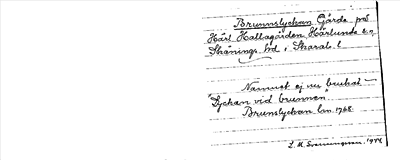 Brunnslyckan Gärde på
Härl. Hallagården, Härlunda sn,
Skånings hd i Skarab. l.
Namnet ej nu brukat
"Lyckan vid brunnen"
Brunslyckan lm 1768.
1944